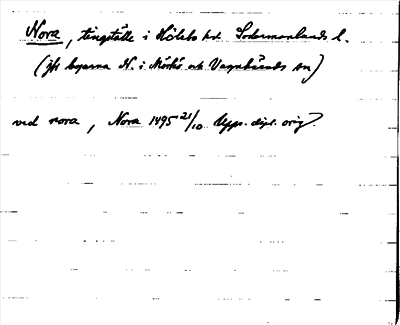 Nora, tingställe i Hölebo hd. Södermanlands l.
(jfr byarna N. i Mörkö och Vagnhärads sn)
ved nora, Nora 1495 21/10 Upps. dipl. orig.